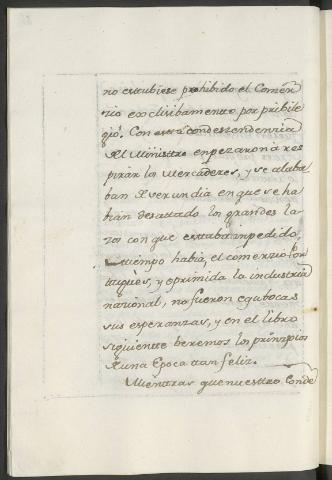 no estubiese prohibido el Comer
zio exclusibamentto por pribile
gió. Con esta condeszendenzia
del Ministtro enpezaron à res
pirar los Mercaderes, y se alaba
ban de ver un dia en que se ha
bian desattado los grandes la
zos con que esttaba inpedido,
ttiempo habia, el comerzio Por
tugués, y oprimida la industria
nazional, no fueron equbocas
sus esperanzas, y en el libro
siguientte beremos los prinzipios
de una Epoca ttan feliz.
Mientras que nuesttro Conde